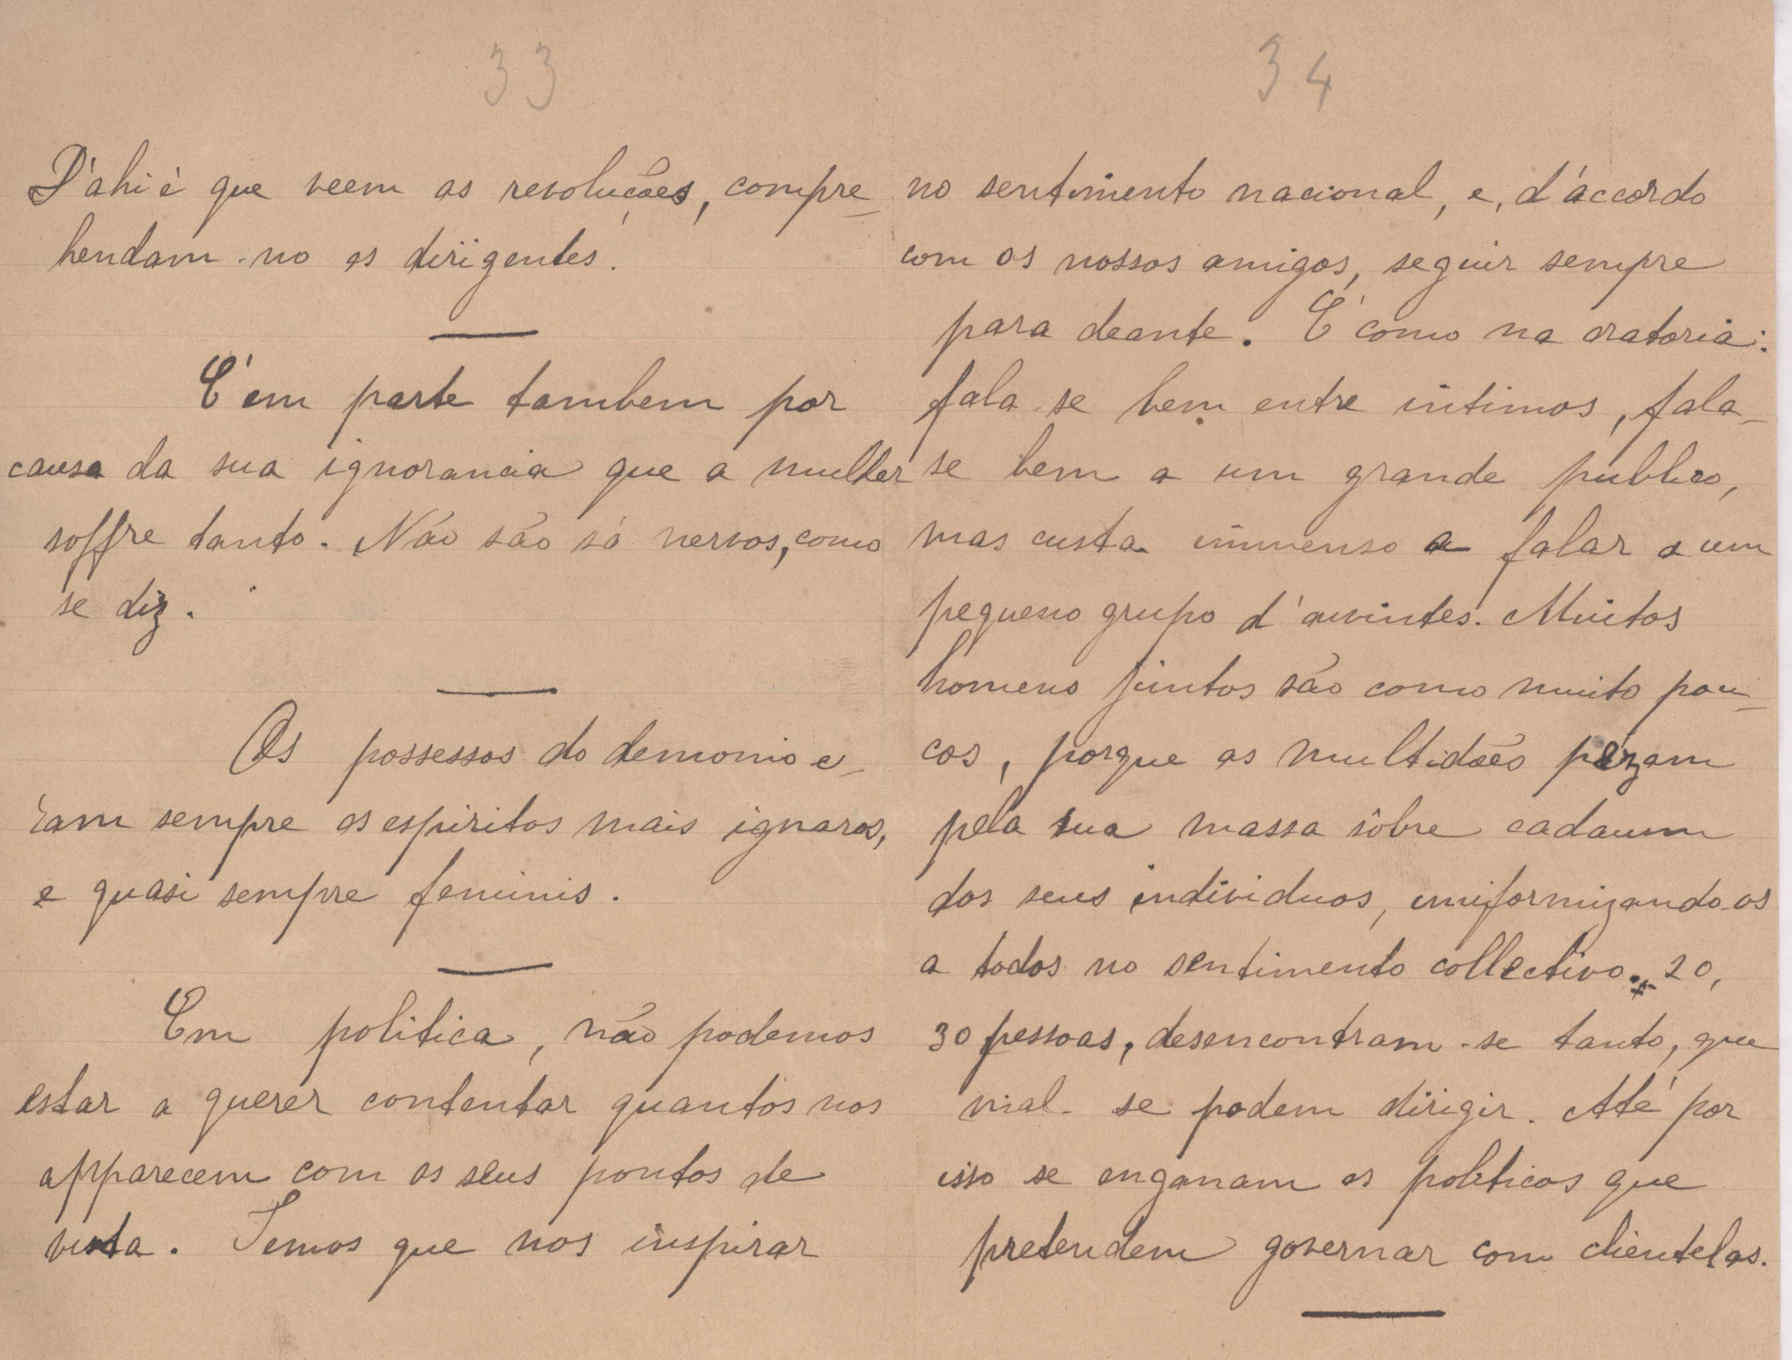 33
D'ahi é que veem as revoluções, compre-
hendam-no os dirigentes.
É em parte tambem por
causa da sua ignorancia que a mulher
soffre tanto. Não são só nervos, como
se diz.
Os possessos do demonio e-
ram sempre os espiritos mais ignaros,
e quasi sempre feminis.
Em politica, não podemos
estar a querer contentar quantos nos
apparecem com os seus pontos de
vista. Temos que nos inspirar
34
no sentimento nacional, e, d'accordo
com os nossos amigos, seguir sempre
para deante. É como na oratoria:
fala-se bem entre intimos, fala-
se bem a um grande publico,
mas custa immenso a falar a um
pequeno grupo d'ouvintes. Muitos
homens juntos são como muito pou-
cos, porque as multidões pezam
pela sua massa sôbre cada um
dos seus individuos, uniformizando-os
a todos no sentimento collectivo. 20,
30 pessoas, desencontram-se tanto, que
mal se podem dirigir. Até por
isso se enganam os politicos que
pretendem governar com clientelas.